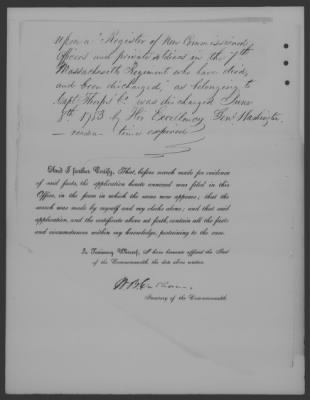 Upon a "Register of Non Commissioned
Officers and private soldiers in the 7th
Massachusetts Regiment who have died,
and been discharged," as belonging to
Capt. Co. was discharged June
9th, 1783 by His Excellency Genl Washington,
— reason time expired
And I further Certify, That, before search made for evidence
of said facts, the application hereto annexed was filed in this
Office, in the form in which the same now appears; that the
search was made by myself and my clerks alone; and that said
application, and the certificate above set forth, contain all the facts
and circumstances within my knowledge, pertaining to the case.
In Testimony Whereof, I have hereunto affixed the Seal
of the Commonwealth the date above written.
Secretary of the Commonwealth.